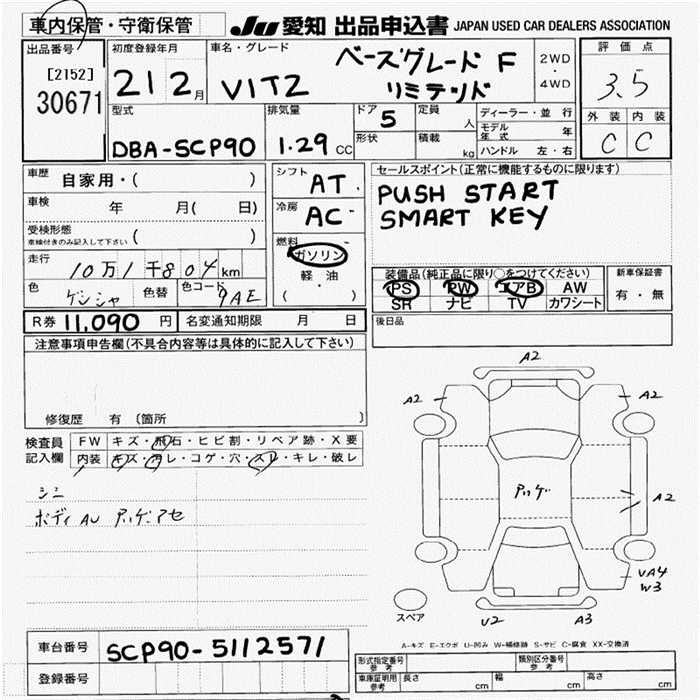 車内保管・守衛保管
JU 愛知 出品申込書 JAPAN USED CAR DEALERS ASSOCIATION
出品番号
[2152]
30671
初度登録年月
21 2月
車名・グレード
VITZ
ベースグレード F
リミテッド
2WD
・
4WD
評価点
3.5
外装 内装
C C
型式
DBA-SCP90
排気量
1.29 CC
ドア
5
形状
定員
人
積載
kg
ディーラー・並行
モデル年式 年
ハンドル 左・右
車歴 自家用・( )
車検 年 月( 日)
受検形態
車検付きのみ記入して下さい ( )
走行 10万1千804km
色 ゲンシャ 色替 色コード 9AE
シフト AT
冷房 AC
燃料
ガソリン
軽・油
( )
セールスポイント(正常に機能するものに限ります)
PUSH START
SMART KEY
装備品(純正品に限り○をつけてください)
PS PW エアB AW
SR ナビ TV カワシート
新車保証書
有・無
R券 11,090 円 名変通知期限 月 日
後日品
注意事項申告欄(不具合内容等は具体的に記入して下さい)
修復歴 有 (箇所 )
検査員
記入欄
FW キズ・飛石・ヒビ割・リペア跡・X要
内装 キズ・ヨレ・コゲ・穴・スレ・キレ・破レ
シミ
ボディAU
A2
A2
A2
A2
VA4
W3
U2
A3
スペア
A-キズ E-エクボ U-凹み W-補修跡 S-サビ C-腐食 XX-交換済
車台番号 SCP90-5112571
登録番号
形式指定番号
参考
類別区分番号
参考
車庫証明用
参考
長さ cm 幅 cm 高さ cm